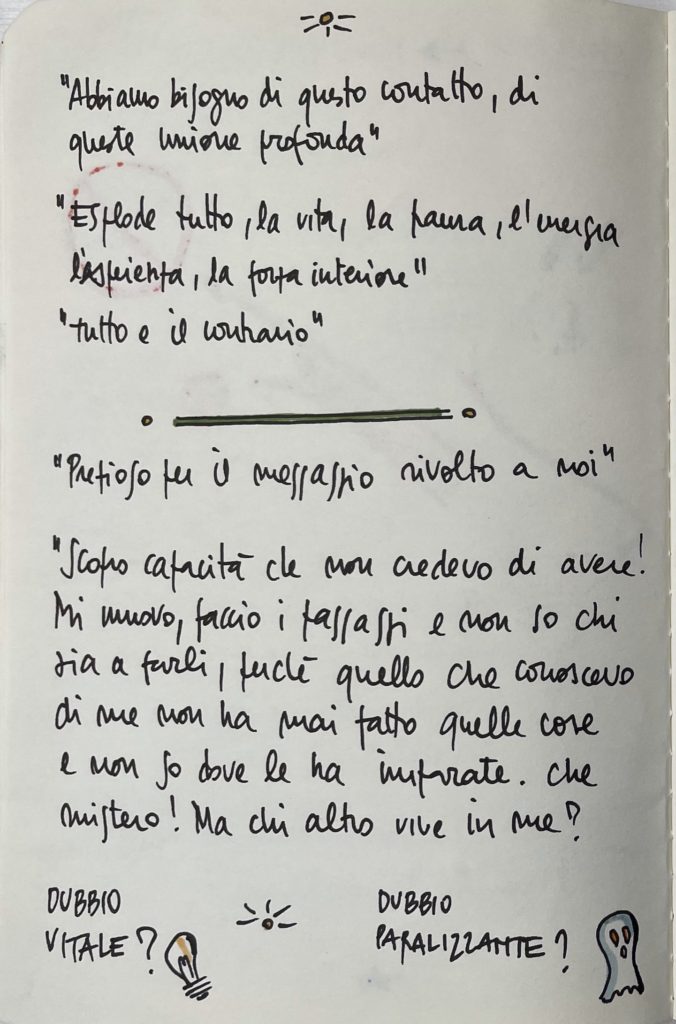 "Abbiamo bisogno di questo contatto, di
queste unione profonda"
"Esplode tutto, la vita, la paura, l'energia
l'aspienza, la forza interiore"
"tutto e il contrario"
"Prezioso per il messaggio rivolto a noi"
"Scopro capacità che non credevo di avere!
Mi muovo, faccio i passaggi e non so chi
sia a farli, perchè quello che conoscevo
di me non ha mai fatto quelle cose
e non so dove le ha imparate. Che
mistero! Ma chi altro vive in me?
DUBBIO
VITALE?
DUBBIO
PARALIZZANTE?